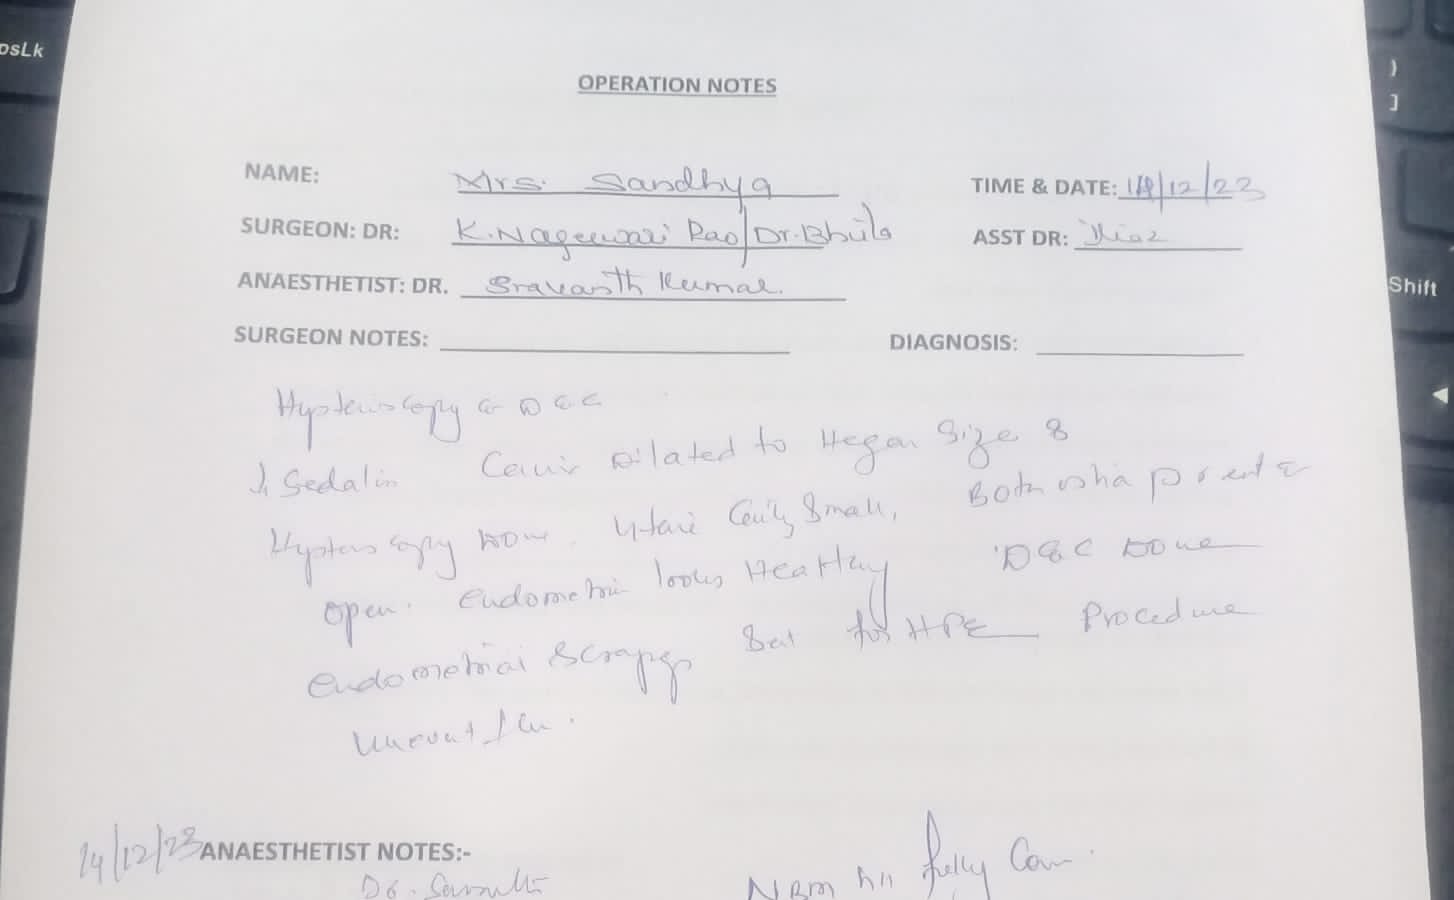 psLk
)
]
Shift
OPERATION NOTES
NAME: Mrs. Sandhya TIME & DATE: 14/12/23
SURGEON: DR: K. Nageswari Rao/Dr. ASST DR:
ANAESTHETIST: DR. Sravanth Kumar.
SURGEON NOTES: DIAGNOSIS:
Hysteroscopy & D & C
Sedation Dilated to Hegar Size 8
Hysteroscopy Done. Small, Both ostia present &
open. Endometrium looks Healthy D&C Done
Endometrial Scrapings Sent for HPE Procedure
uneventful.
14/12/23 ANAESTHETIST NOTES:-
Dr. NBM till fully